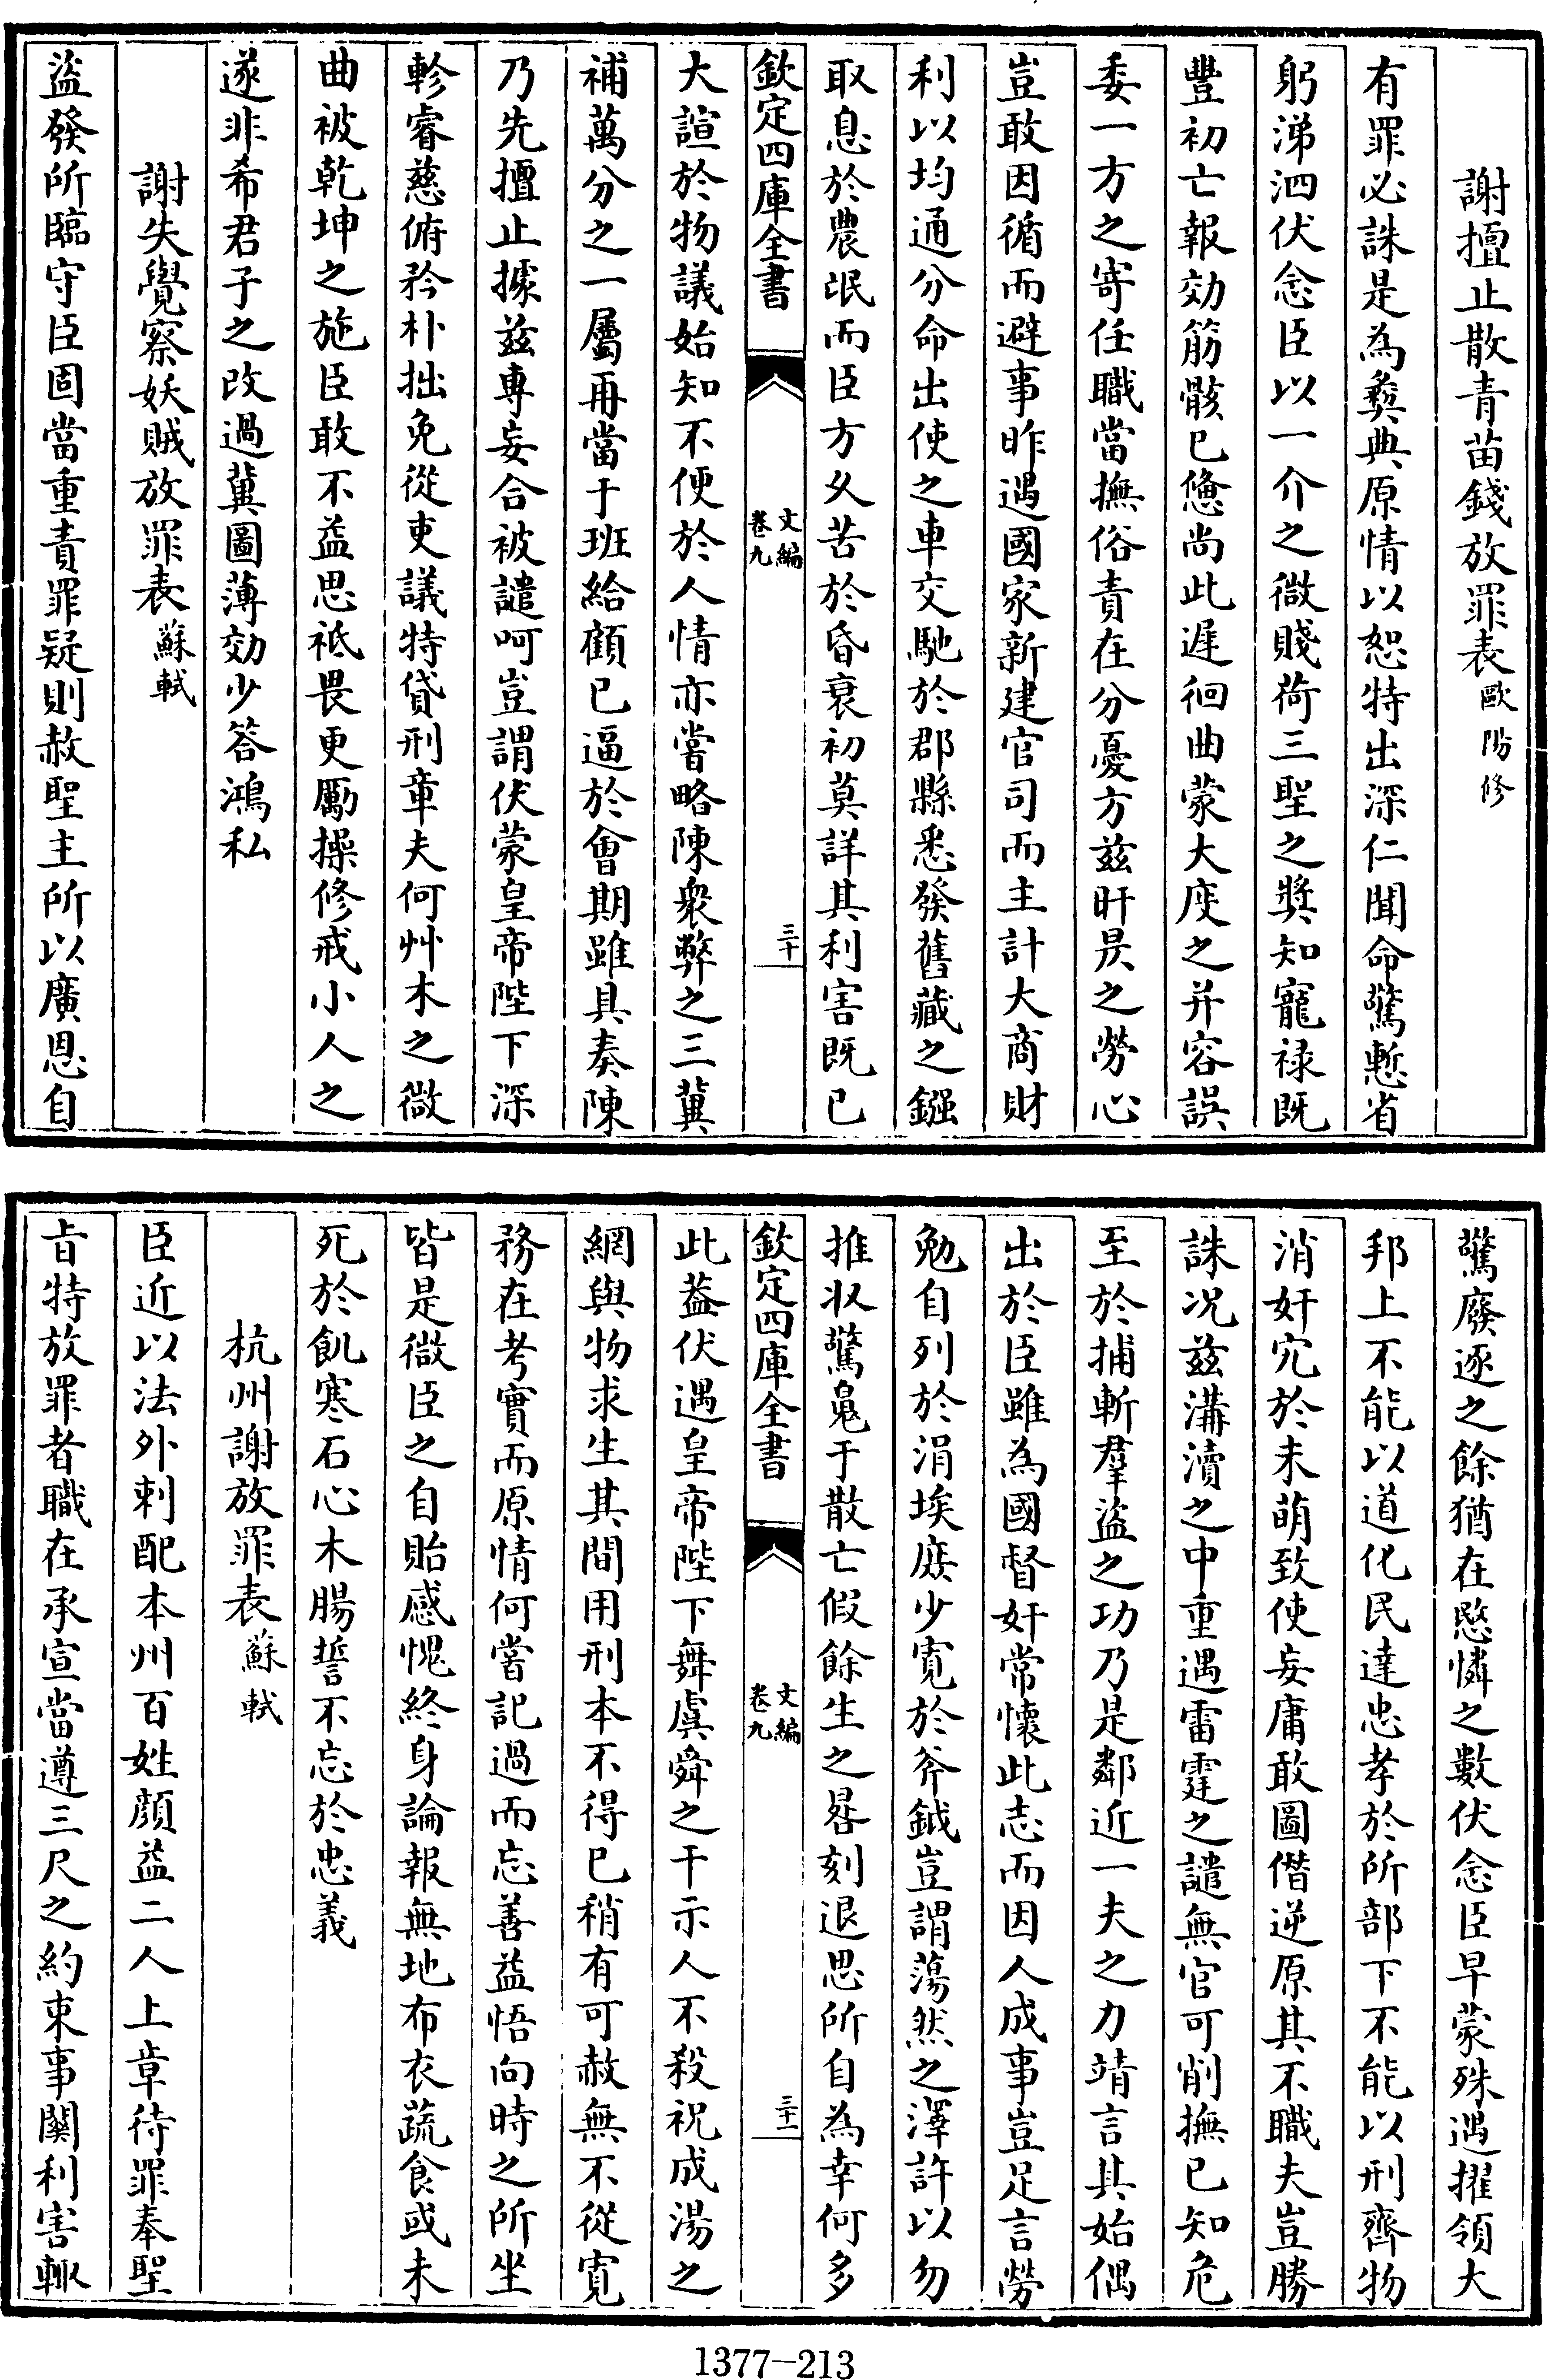 謝擅止散青苗錢放罪表歐陽修
有罪必誅是為彝典原情以恕特出深仁聞命驚慙省
躬涕泗伏念臣以一介之微賤荷三聖之奬知寵祿既
豐初亡報効筋骸已憊尚此遲徊曲蒙大度之幷容誤
委一方之寄任職當撫俗責在分憂方兹旰昃之勞心
豈敢因循而避事昨遇國家新建官司而主計大商財
利以均通分命出使之車交馳於郡縣悉發舊藏之鏹
取息於農氓而臣方乆苦於昏衰初莫詳其利害既已
欽定四庫全書
文編
卷九
三十
大諠於物議始知不便於人情亦嘗略陳衆弊之三冀
補萬分之一屬再當于班給顧已逼於會期雖具奏陳
乃先擅止據兹專妄合被譴呵豈謂伏蒙皇帝陛下深
軫睿慈俯矜朴拙免從吏議特貸刑章夫何艸木之微
曲被乾坤之施臣敢不益思祗畏更勵操修戒小人之
遂非希君子之改過冀圖薄効少答鴻私
謝失覺察妖賊放罪表蘇軾
盜發所臨守臣固當重責罪疑則赦聖主所以廣恩自
驚廢逐之餘猶在愍憐之數伏念臣早蒙殊遇擢領大
邦上不能以道化民達忠孝於所部下不能以刑齊物
消奸宄於未萌致使妄庸敢圖僭逆原其不職夫豈勝
誅况兹溝瀆之中重遇雷霆之譴無官可削撫己知危
至於捕斬羣盜之功乃是鄰近一夫之力靖言其始偶
出於臣雖為國督奸常懷此志而因人成事豈足言勞
勉自列於涓埃庶少寬於斧鉞豈謂蕩然之澤許以勿
推收驚䰟于散亡假餘生之晷刻退思所自為幸何多
欽定四庫全書
文編
卷九
三十一
此葢伏遇皇帝陛下舞虞舜之干示人不殺祝成湯之
網與物求生其間用刑本不得已稍有可赦無不從寬
務在考實而原情何嘗記過而忘善益悟向時之所坐
皆是微臣之自貽感愧終身論報無地布衣蔬食或未
死於飢寒石心木腸誓不忘於忠義
杭州謝放罪表蘇軾
臣近以法外刺配本州百姓顔益二人上章待罪奉聖
㫖特放罪者職在承宣當遵三尺之約束事關利害輒
1377—213